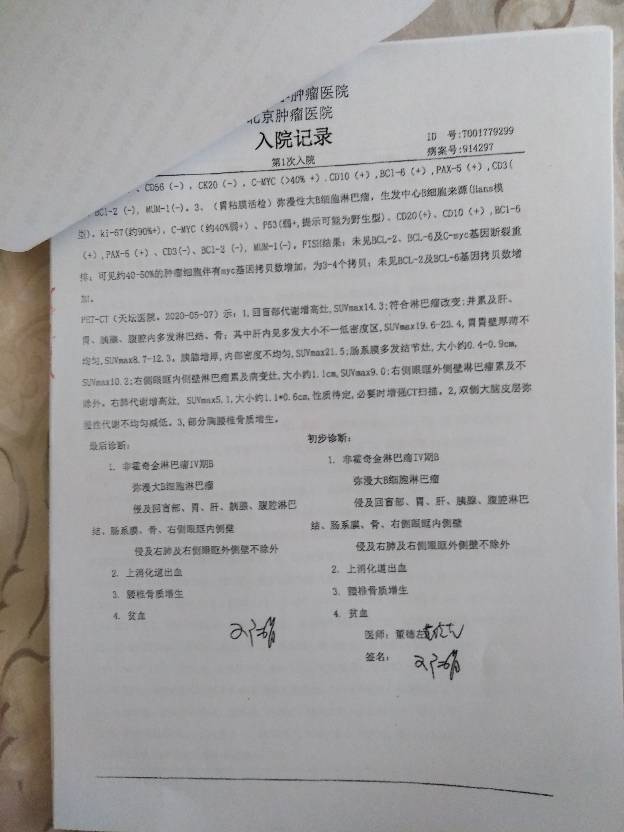 肿瘤医院
北京肿瘤医院
入院记录
第1次入院
ID 号:7001779299
病案号:914297
、CD56（-），CK20（-），C-MYC（>40% +）,CD10（+）,BCl-6（+）,PAX-5（+）,CD3(
BCl-2（-),MUM-1(-)。3、（胃粘膜活检）弥漫性大B细胞淋巴瘤，生发中心B细胞来源(Hans模
型)。ki-67(约90%+)，C-MYC（约40%弱+）、P53(弱+,提示可能为野生型)、CD20(+)、CD10（+）,BCl-6
（+）,PAX-5（+）、CD3(-)、BCl-2（-),MUM-1(-)。FISH结果：未见BCL-2、BCL-6及C-myc基因断裂重
排；可见约40-50%的肿瘤细胞伴有myc基因拷贝数增加，为3-4个拷贝；未见BCL-2及BCL-6基因拷贝数增
加。
PET-CT（天坛医院，2020-05-07）示：1,回盲部代谢增高灶,SUVmax14.3;符合淋巴瘤改变;并累及肝、
胃、胰腺、腹腔内多发淋巴结、骨；其中肝内见多发大小不一低密度区,SUVmax19.6-23.4,胃胃壁厚薄不
均匀,SUVmax8.7-12.3。胰腺增厚,内部密度不均匀,SUVmax21.5;肠系膜多发结节灶,大小约0.4-0.9cm,
SUVmax10.2;右侧眼眶内侧壁淋巴瘤累及病变灶,大小约1.1cm,SUVmax9.0;右侧眼眶外侧壁淋巴瘤累及不
除外。右肺代谢增高灶，SUVmax5.1,大小约1.1*0.6cm,性质待定,必要时增强CT扫描。2,双侧大脑皮层弥
漫性代谢不均匀减低。3,部分胸腰椎骨质增生。
最后诊断：
1. 非霍奇金淋巴瘤IV期B
弥漫大B细胞淋巴瘤
侵及回盲部、胃、肝、胰腺、腹腔淋巴
结、肠系膜、骨、右侧眼眶内侧壁
侵及右肺及右侧眼眶外侧壁不除外
2. 上消化道出血
3. 腰椎骨质增生
4. 贫血
初步诊断：
1. 非霍奇金淋巴瘤IV期B
弥漫大B细胞淋巴瘤
侵及回盲部、胃、肝、胰腺、腹腔淋巴
结、肠系膜、骨、右侧眼眶内侧壁
侵及右肺及右侧眼眶外侧壁不除外
2. 上消化道出血
3. 腰椎骨质增生
4. 贫血
医师：董德左
签名：